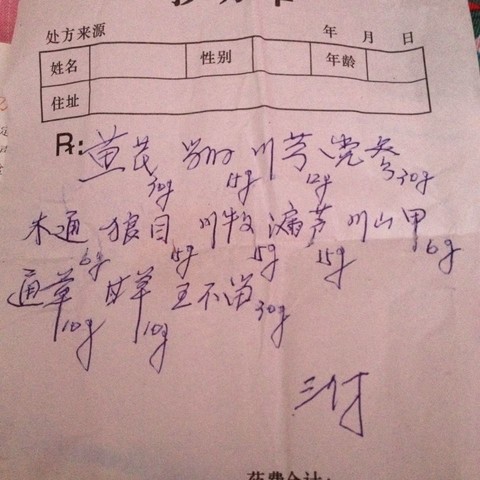 处方来源 年 月 日
姓名 性别 年龄
住址
R:
黄芪 30g 当归 15g 川芎 12g 党参 30g
木通 6g 5g 15g 漏芦 15g 川山甲 6g
通草 10g 甘草 10g 王不留 30g
三付